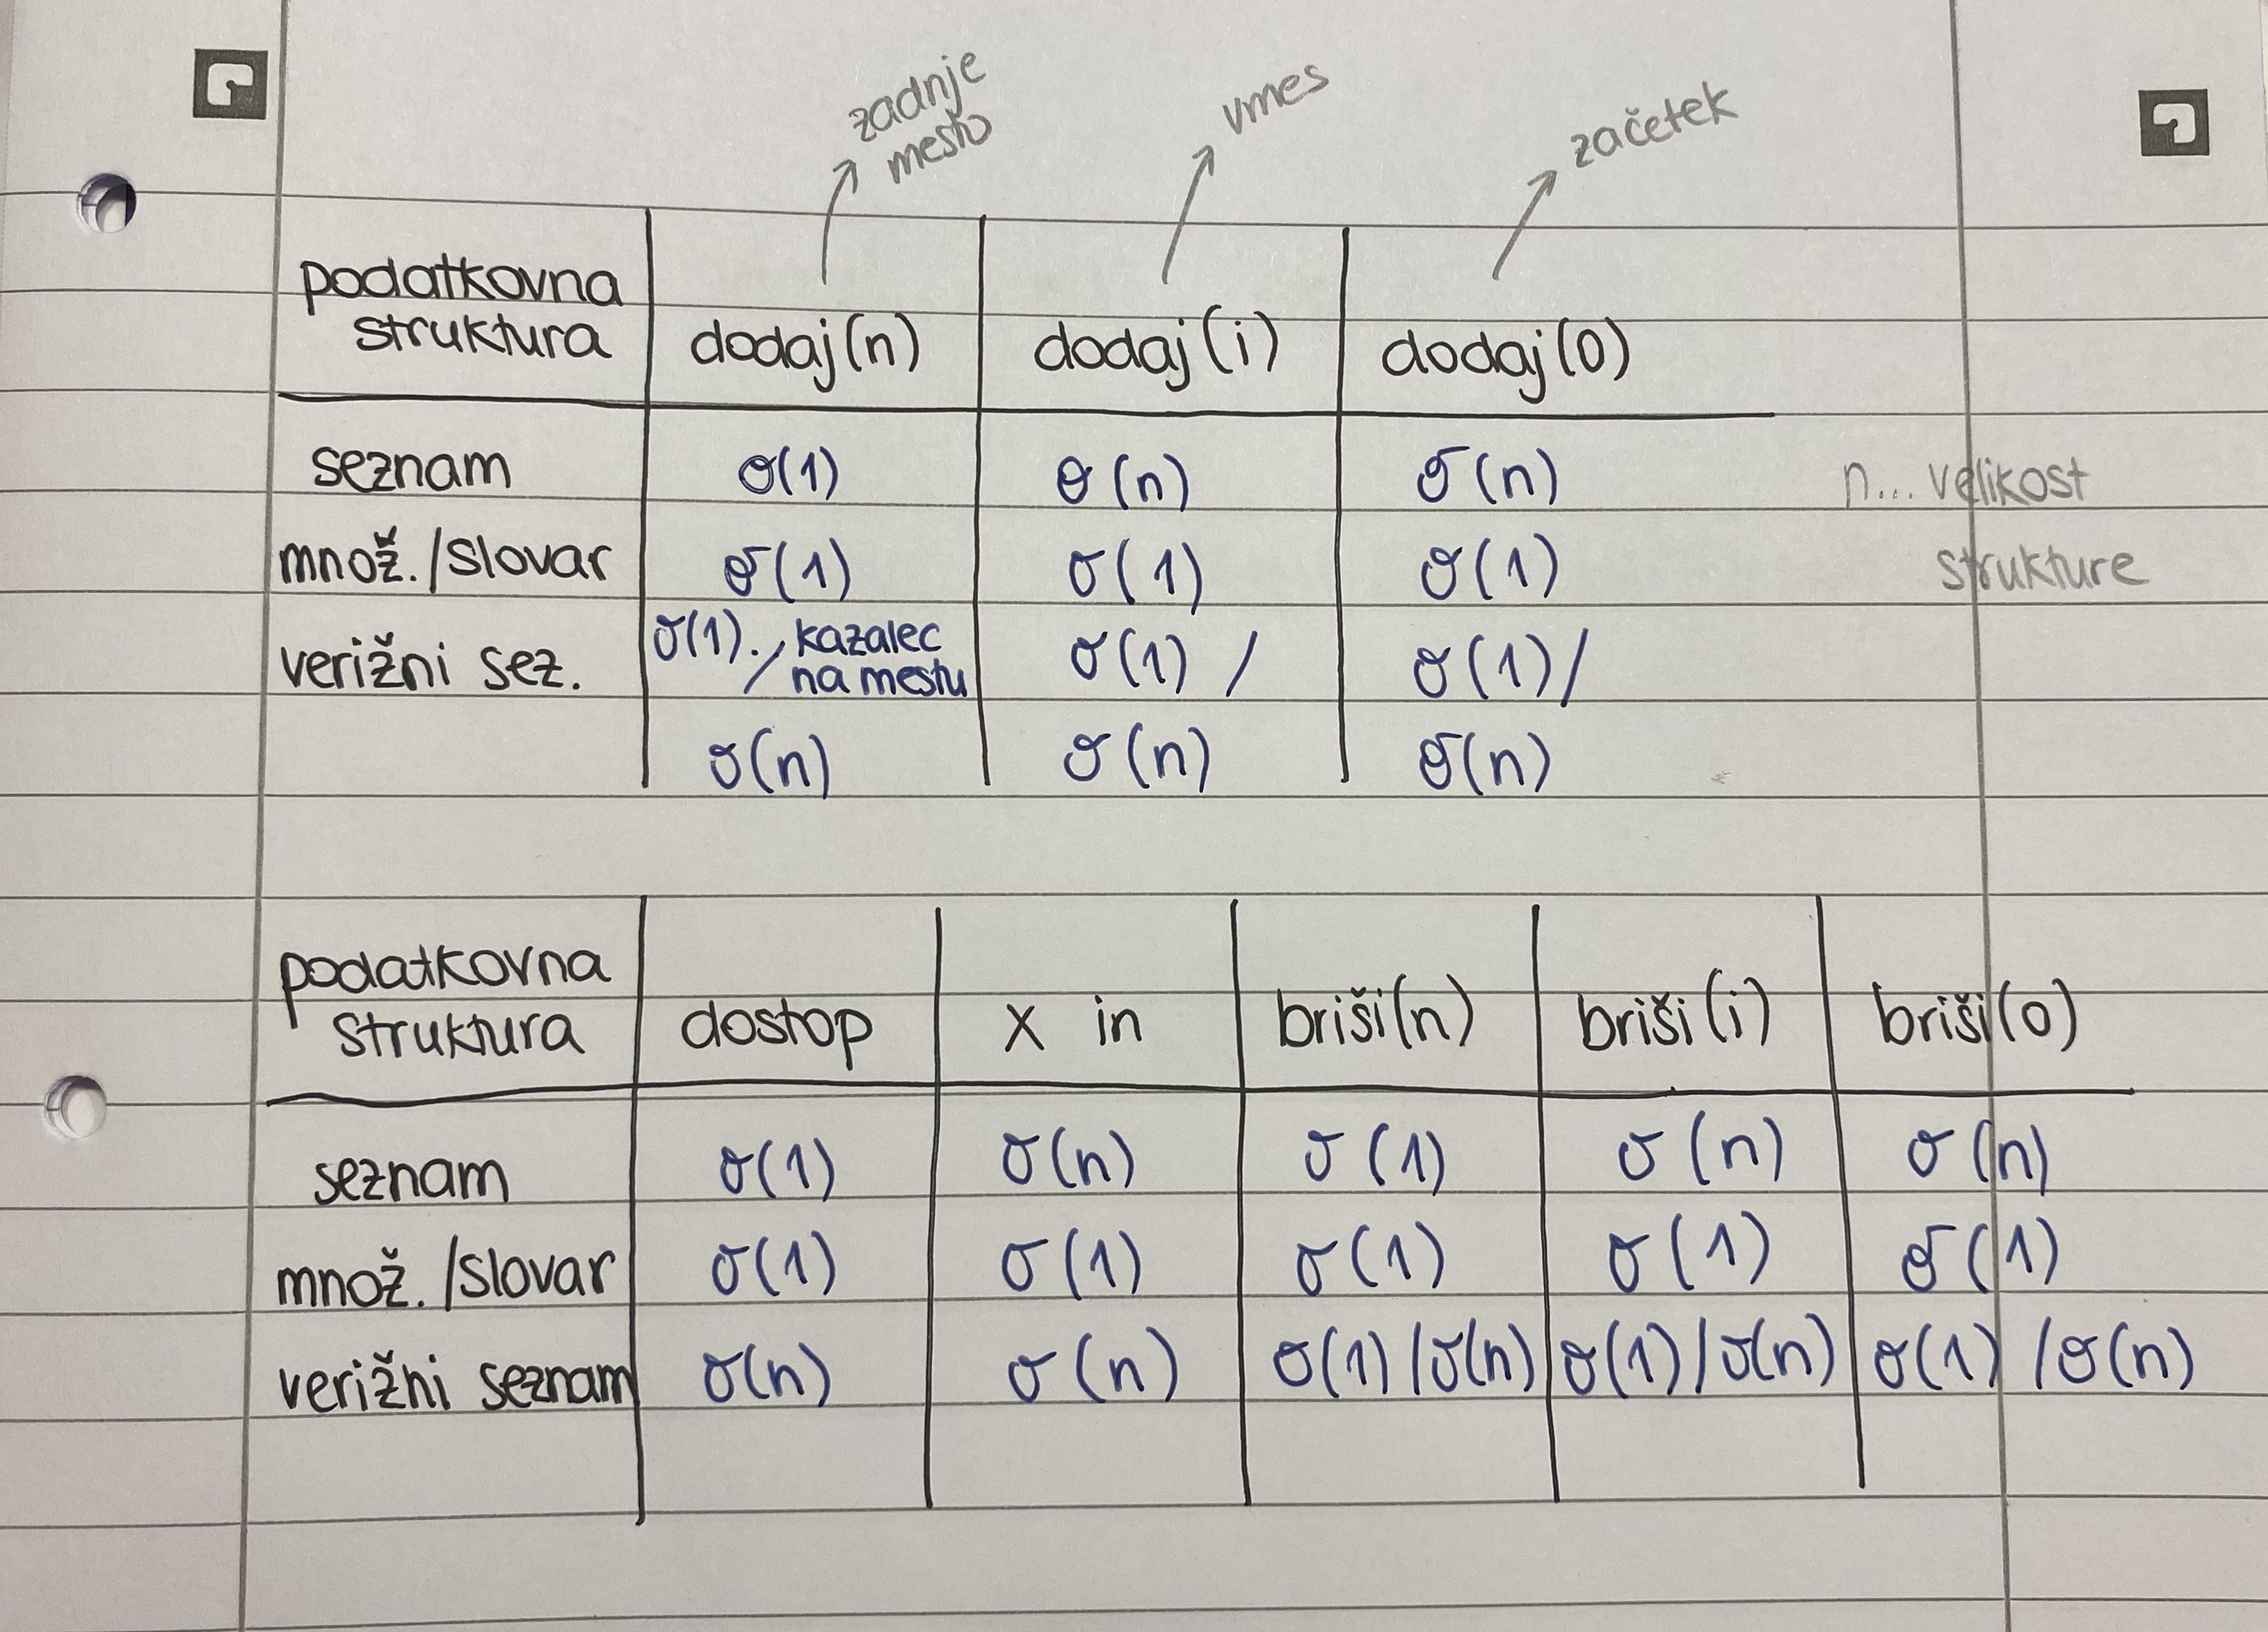 zadnje
mesto
vmes
začetek
podatkovna
struktura dodaj(n) dodaj(i) dodaj(0)
seznam O(1) O(n) O(n) n... velikost
množ./slovar O(1) O(1) O(1) strukture
verižni sez. O(1) / kazalec na mestu O(1) / O(1) /
O(n) O(n) O(n)
podatkovna
struktura dostop x in briši(n) briši(i) briši(0)
seznam O(1) O(n) O(1) O(n) O(n)
množ./slovar O(1) O(1) O(1) O(1) O(1)
verižni seznam O(n) O(n) O(1)/O(n) O(1)/O(n) O(1)/O(n)